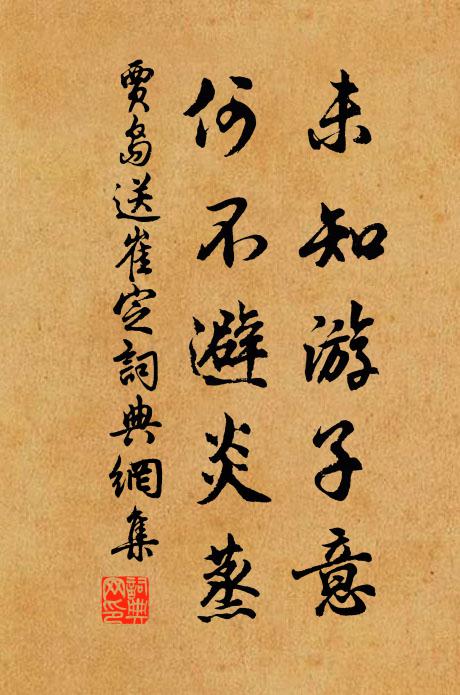 未知游子意
何不避炎蒸
賈島送崔定詞典網集
詞典
网印